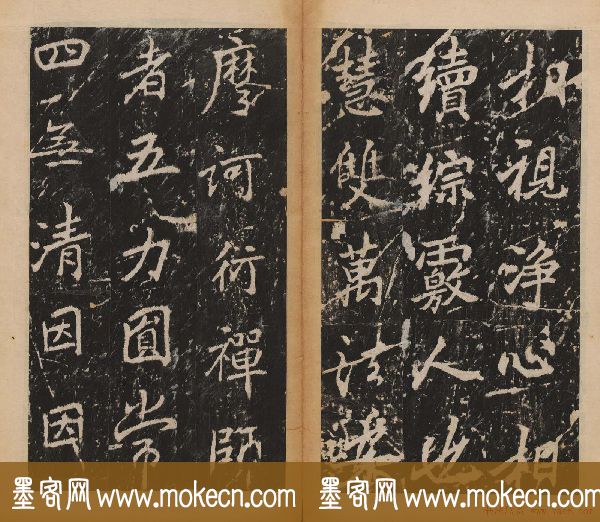 扣視淨心相
續綜覈人也
慧雙萬法
摩訶衍禪師
者五力圓常
四無清因因
墨客网 www.mokecn.com
墨客网 www.mokecn.com